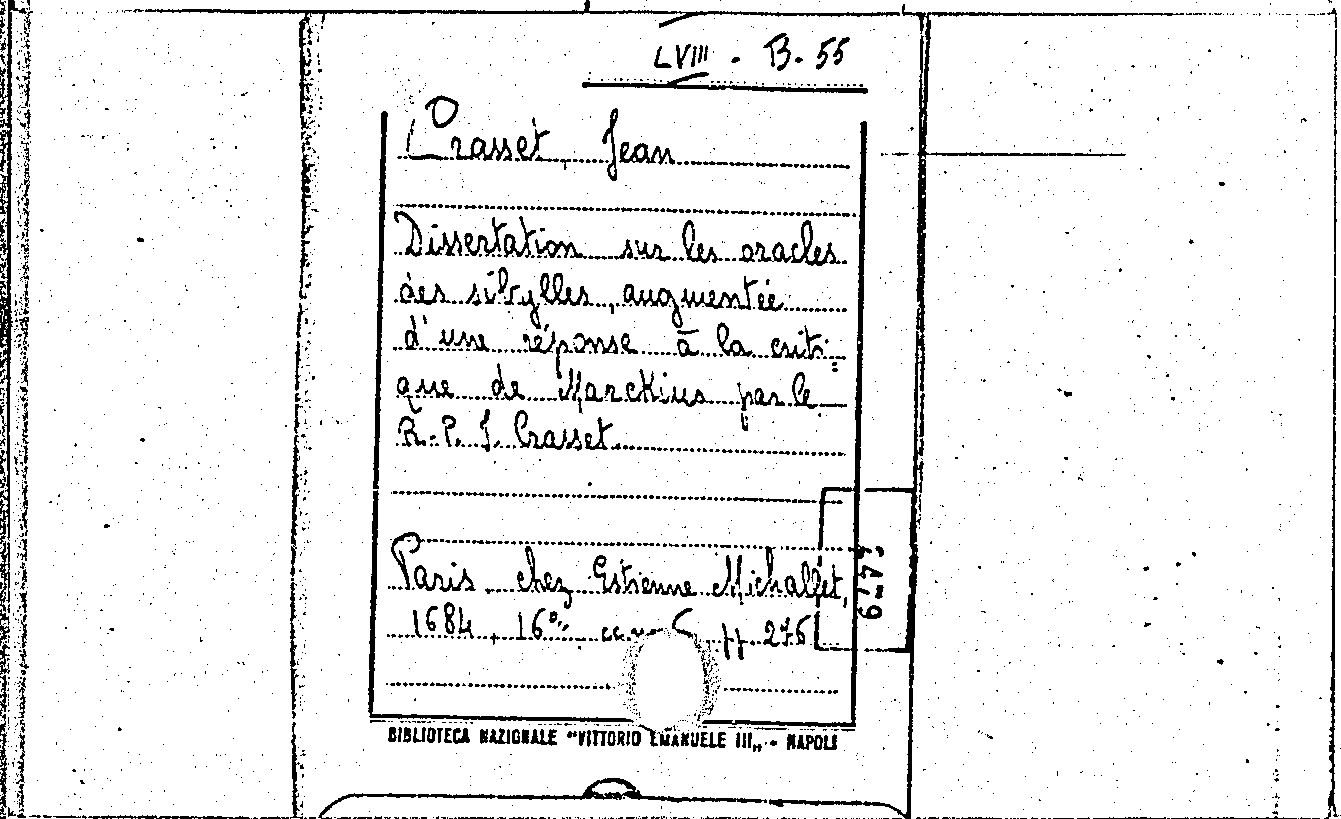 LVIII - B. 55
Crasset, Jean
Dissertation sur les oracles
des sibylles, augmentée
d'une réponse à la criti=
que de Marckius par le
R. P. J. Crasset.
Paris, chez Estienne Michallet,
1684, 16° pp. 276
BIBLIOTECA NAZIONALE "VITTORIO EMANUELE III„ - NAPOLI